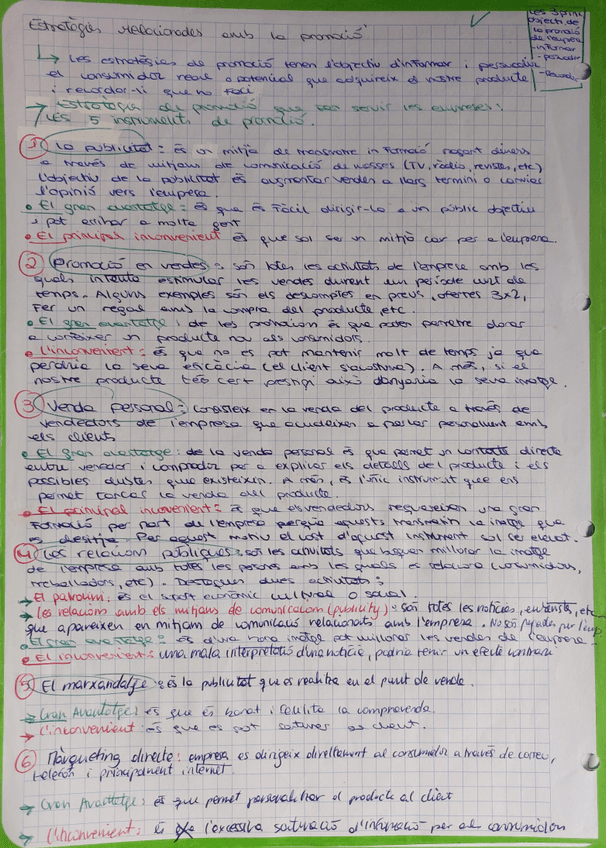 Estratègies relacionades amb la promoció
Les 3 principals
objectius de
la promoció
de l'empresa
- informar
- persuadir
- Recordar
Les estratègies de promoció tenen l'objectiu d'informar i persuadir
el consumidor real o potencial que adquireix el nostre producte
i recordar-li que ho faci
Estratègia de promoció que fan servir les empreses:
Les 5 instruments de promoció.
① La publicitat: és un mitjà de transmetre informació pagant diners
a través de mitjans de comunicació de masses (TV, ràdio, revistes, etc)
l'objectiu de la publicitat és augmentar vendes a llarg termini o canviar
l'opinió vers l'empresa.
• El gran avantatge: és que és fàcil dirigir-lo a un públic objectiu
i pot arribar a molta gent
• El principal inconvenient és que sol ser un mitjà car per a l'empresa.
② Promoció en vendes: són totes les activitats de l'empresa amb les
quals intenta estimular les vendes durant un període curt de
temps. Alguns exemples són els descomptes en preus, ofertes 3x2,
Fer un regal amb la compra del producte, etc.
• El gran avantatge: de les promocion és que poden permetre donar
a conèixer un producte nou als consumidors.
• L'inconvenient: és que no es pot mantenir molt de temps ja que
perdria la seva eficàcia (el client s'acostuma). A més, si el
nostre producte té cert prestigi això danyaria la seva imatge.
③ Venda Personal: consisteix en la venda del producte a través de
vendedors de l'empresa que acudeixen a parlar personalment amb
els clients
• El gran avantatge: de la venda personal és que permet un contacte directe
entre venedor i comprador per a explicar els detalls del producte i els
possibles dubtes que existeixin. A més, és l'únic instrument que ens
permet tancar la venda del producte.
• El principal inconvenient: és que els vendedors requereixen una gran
Formació per part de l'empresa perquè aquests transmetin la imatge que
es desitja. Per aquest motiu el cost d'aquest instrument sol ser elevat.
④ Les relacions públiques: són les activitats que busquen millorar la imatge
de l'empresa amb totes les persones amb les quals es relaciona (consumidors,
treballadors, etc). Destaquen dues activitats:
→ El patrocini: és el suport econòmic cultural o social.
→ Les relacions amb els mitjans de comunicacion (publicity): són totes les notícies, entrevistes, etc
que apareixen en mitjans de comunicació relacionats amb l'empresa. No són pagades per l'emp.
• El gran avantatge: és d'una bona imatge pot millorar les vendes de l'empresa.
• El inconvenient: una mala interpretació d'una notícia, podria tenir un efecte contrari
⑤ El marxandatge: és la publicitat que es realitza en el punt de venda.
→ Gran Avantatge: és que és barat i facilita la compravenda.
→ L'inconvenient: és que es pot saturar el client.
⑥ Màrqueting directe: empresa es dirigeix directament al consumidor a través de correu,
telèfon i principalment internet.
→ Gran Avantatge: és que permet personalitzar el producte al client
→ L'inconvenient: és l'excessiva saturació d'informació per als consumidors